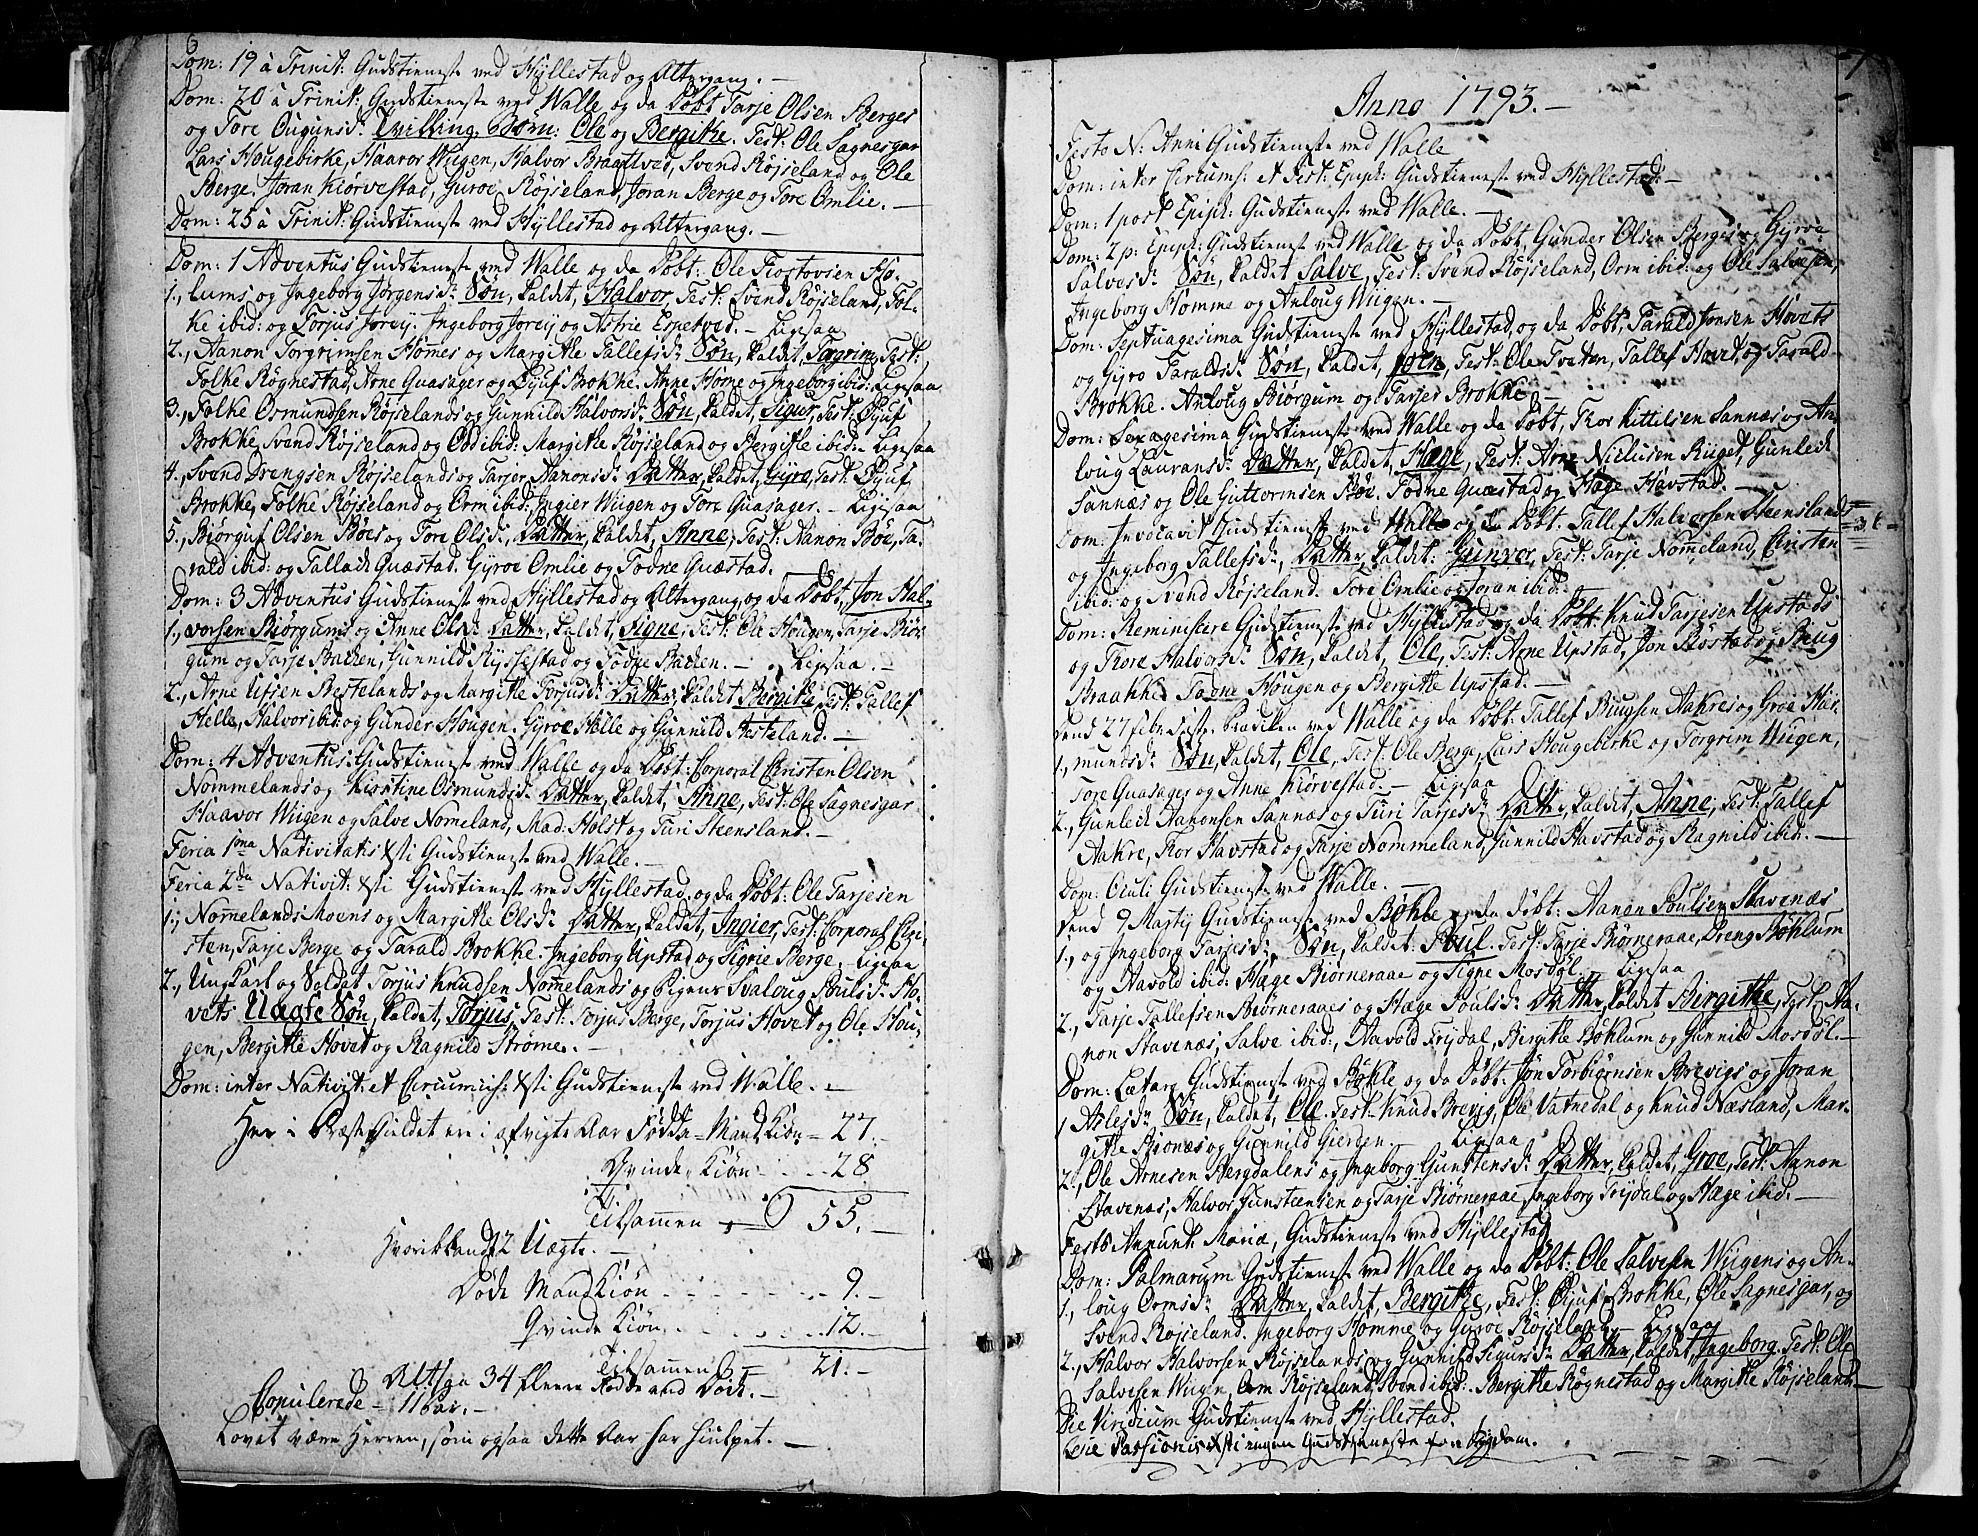 6
Dom: 19 à Trinit: Gudstieneste ved Hyllestad og Altergang. —
Dom: 20 à Trinit: Gudstieneste ved Walle og da Døbt Tarje Olsen Berges
og Tore Ougunsd: Tvilling Børn: Ole og Bergitke. Test: Ole Sagnesgar
Lars Hougebirke, Haavor Wiigen, Halvor Braatved, Svend Røjseland og Ole
Berge, Joran Kiørvestad, Guroe Røjseland, Joran Berge og Tore Omlie. —
Dom: 25 à Trinit: Gudstieneste ved Hyllestad og Altergang. —
Dom: 1 Adventus Gudstieneste ved Walle og da Døbt: Ole Tiostovsen Ho-
1., lums og Ingeborg Jørgensd: Søn, kaldet, Halvor, Test: Svend Røjseland, Fol-
ke ibid: og Torjus Jorej. Ingeborg Jorej og Astrie Espetved. — Ligesaa
2., Aanon Torgrimsen Homes og Margitke Tallefsd: Søn, kaldet, Torgrim, Test:
Folke Rognestad, Arne Quasager og Bjuf Brokke. Anne Home og Ingeborg ibid: Ligesaa
3., Folke Osmundsen Røjselands og Gunnild Halvorsd: Søn, kaldet, Sigur, Test: Bjuf
Brokke, Svend Røjseland og Odd ibid: Margitke Røjseland og Bergitke ibid: Ligesaa
4., Svend Drengsen Røjselands og Tarjer Aanonsd: Datter, kaldet, Gyro, Test: Bjuf
Brokke, Folke Røjseland og Orm ibid: Ingier Wiigen og Tore Quasager. — Ligesaa
5., Biørguf Olsen Bøes og Tore Olsd:, Datter, kaldet, Anne, Test: Aanon Bøe, Ta-
rald ibid: og Tallack Quæstad. Gyroe Omlie og Todne Quæstad.
Dom: 3 Adventus Gudstieneste ved Hyllestad og Altergang, og da Døbt, Jon Hal-
1., vorsen Biørgums og Anne Olsd: Datter, kaldet, Signe, Test: Ole Hougen, Tarje Biør-
gum og Tarje Backen, Gunnild Rysestad og Todne Backen. — Ligesaa. —
2., Arne Ufsen Hestelands og Margitke Torjusd: Datter, kaldet Bergitke, Test: Tallef
Helle, Halvor ibid: og Gunder Hougen. Gyroe Helle og Gunnild Hesteland. —
Dom: 4 Adventus: Gudstieneste ved Walle og da Døbt: Corporal Christen Olsen
Nommelands og Kirstine Osmundsd: Datter, kaldet, Anne, Test: Ole Sagnesgar
Haavor Wiigen og Salve Nomeland, Mad: Holst og Turi Steensland. —
Feria 1ma Nativitatis Xsti Gudstieneste ved Walle. —
Feria 2da Nativit: Xsti Gudstieneste ved Hyllestad, og da Døbt: Ole Tarjesen
1., Nomelands Moens og Margitke Olsd: Datter, kaldet, Ingier, Test: Corporal Chri-
sten, Tarje Berge og Tarald Brokke. Ingeborg Upstad og Sigrie Berge. Ligesaa
2., Ungkarl og Soldat Torjus Knudsen Nomelands og Pigens Svaloug Poulsd: Ho-
vets Uægte Søn, kaldet, Torjus, Test: Torjus Berge, Torjus Hovet og Ole Hou-
gen, Bergitke Hovet og Ragnild Strøme. —
Dom: inter Nativit: et Circumcis: Xsti Gudstieneste ved Walle. —
Her i Præstegieldet ere i afvigte Aar Fødde = Mand Kiøn = 27. —
Qvinde Kiøn . . . . 28
Tilsammen 55. —
Hvoriblandt 2 Uægte. —
Døde Mand Kiøn . . . . . . . 9. —
Qvinde Kiøn . . . . . . . 12. —
Tilsammen 21. —
Altsaa 34 fleere Fødde end Døde. —
Copulerede = 11 Par. —
Lovet være Herren, som ogsaa dette Aar har hiulpet. —
7
Anno 1793. —
Festo N: Anni Gudstieneste ved Walle
Dom: inter Circums: et Fest: Epiph: Gudstieneste ved Hyllestad. —
Dom: 1 post Epiph: Gudstieneste ved Walle. —
Dom: 2 p: Epiph: Gudstieneste ved Walle og da Døbt, Gunder Olsen Berges og Gyroe
Salvesd: Søn, kaldet Salve, Test: Svend Røjseland, Orm ibid: og Ole Salvesen,
Ingeborg Homme og Anloug Wiigen. —
Dom: Septuagesima Gudstieneste ved Hyllestad, og da Døbt, Tarald Jonsen Hovets
og Gyro Taraldsd: Søn, kaldet, Joen, Test: Ole Tveten, Tallef Hovet og Tarald
Brokke. Anloug Biørgum og Tarjer Brokke. —
Dom: Sexagesima Gudstieneste ved Walle og da Døbt, Thor Kittilsen Sannæs og An-
loug Lauransd: Datter, kaldet, Hæge, Test: Arne Nielusen Riiget, Gunleik
Sannæs og Ole Guttormsen Bøe. Todne Quæstad og Hæge Havstad. —
Dom: Invocavit Gudstieneste ved Walle og da Døbt: Tallef Halvorsen Steenslands
og Ingeborg Tallefsd:, Datter, kaldet: Gunver, Test: Tarje Nomeland, Christen
ibid: og Svend Røjseland. Tore Omlie og Joran ibid: —
Dom: Reminiscere Gudstieneste ved Hyllestad og da Døbt Knud Tarjesen Upstads
og Thore Halvorsd: Søn, kaldet, Ole, Test: Arne Upstad, Jon Rostad og Biug
Braakke. Todne Hougen og Bergitke Upstad. —
Dend 27 Febr: Sidste Prædiken ved Walle og da Døbt: Tallef Biugsen Aakres og Groe Her-
1., munds: Søn, kaldet, Ole, Test: Ole Berge, Lars Hougebirke og Torgrim Wiigen,
Tore Quasager og Anne Kiørvestad. — Ligesaa
2., Gunleik Aanonsen Sannæs og Turi Tarjesd: Datter, kaldet, Anne, Test: Tallef
Aakre, Thor Havstad og Tarje Nommeland, Gunnild Havstad og Ragnild ibid: —
Dom: Oculi Gudstieneste ved Walle. —
Dend 9 Martij Gudstieneste ved Bøkle og da Døbt: Aanon Poulsen Stavenæs
1., og Ingeborg Tarjesd: Søn, kaldet: Poul. Test: Tarje Biørneraae, Dreng Bøhlum
og Aavold ibid: Hæge Biørneraae og Signe Mosdøl. Ligesaa
2., Tarje Tallefsen Biørneraaes og Hæge Poulsd: Datter, kaldet Birgitke, Test: Aa-
non Stavenæs, Salve ibid:, Aavold Trijdal, Birgitke Bøhlum og Gunnild Mosdøl. —
Dom: Lætare Gudstieneste ved Bøkle og da Døbt: Jon Torbiørnsen Brevigs og Joran
1 Aslesd: Søn, kaldet, Ole. Test: Knud Brevig, Ole Vatnedal og Knud Næsland, Mar-
gitke Biønæs og Gunnild Gierden. — Ligesaa
2., Ole Arnesen Bergdalens og Ingeborg Gunstensd: Datter, kaldet, Groe, Test: Aanon
Stavenæs, Halvor Gunsteensen og Tarje Biørneraae, Ingeborg Trijdal og Hæge ibid. —
Festo Annunt: Mariæ, Gudstieneste ved Hyllestad
Dom: Palmarum Gudstieneste ved Walle og da Døbt: Ole Salvesen Wiigens og An-
1., loug Ormsd: Datter, kaldet, Bergitke, Test: Bjuf Brokke, Ole Sagnesgar, og
Svend Røjseland. Ingeborg Homme og Guroe Røjseland. — Ligesaa
2., Halvor Halvorsen Røjselands og Gunnild Sigursd: Datter, kaldet, Ingeborg. Test: Ole
Salvesen Wiigen, Orm Røjseland, Svend ibid:. Bergitke Rognestad og Margitke Røjseland. —
Die Viridium Gudstieneste ved Hyllestad.
Die Passionis Xsti ingen Gudstieneste for Sygdom.